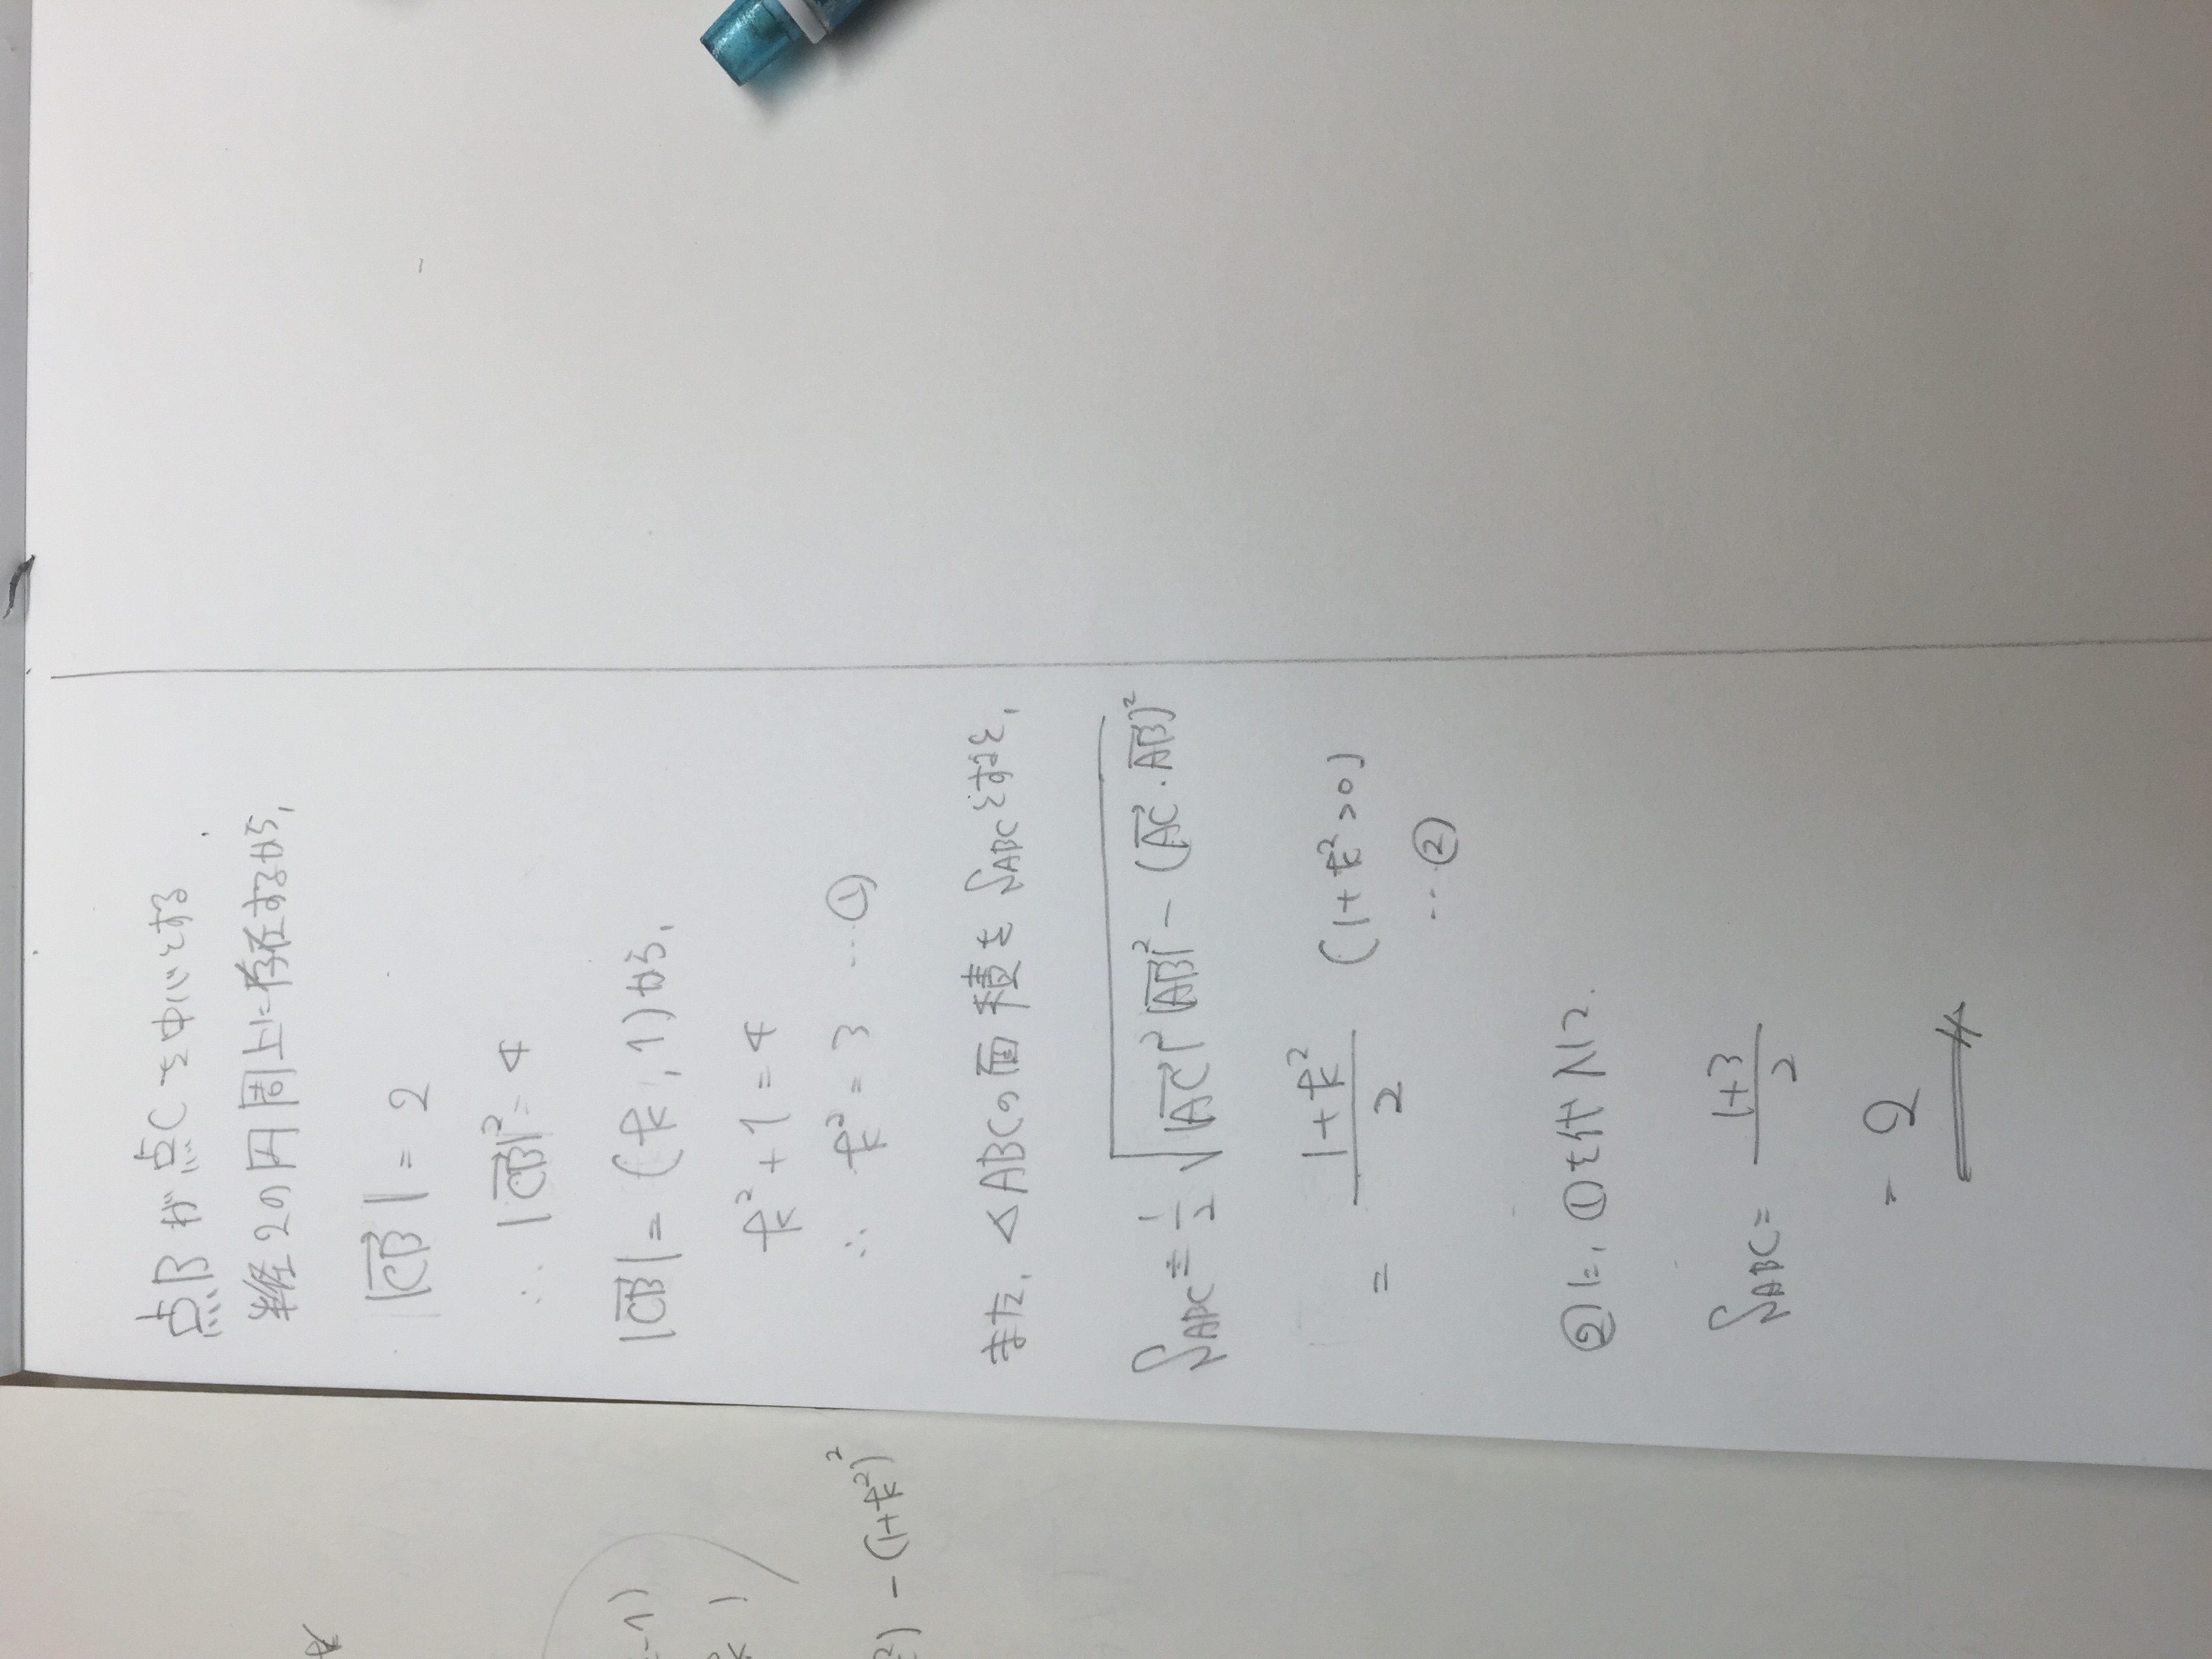 点Bが点Cを中心とする
半径2の円周上に存在するから,
|CB| = 2
∴ |CB|² = 4
|CB| = (k, 1)から,
k² + 1 = 4
∴ k² = 3 …①
また, △ABCの面積をS_ABCとすると,
S_ABC = 1/2 √|AC|²|AB|² - (AC・AB)²
= (1+k²)/2 (1+k²>0)
…②
②に, ①を代入して,
S_ABC = (1+3)/2
= 2
-1)
k )
²) - (1+k²)²